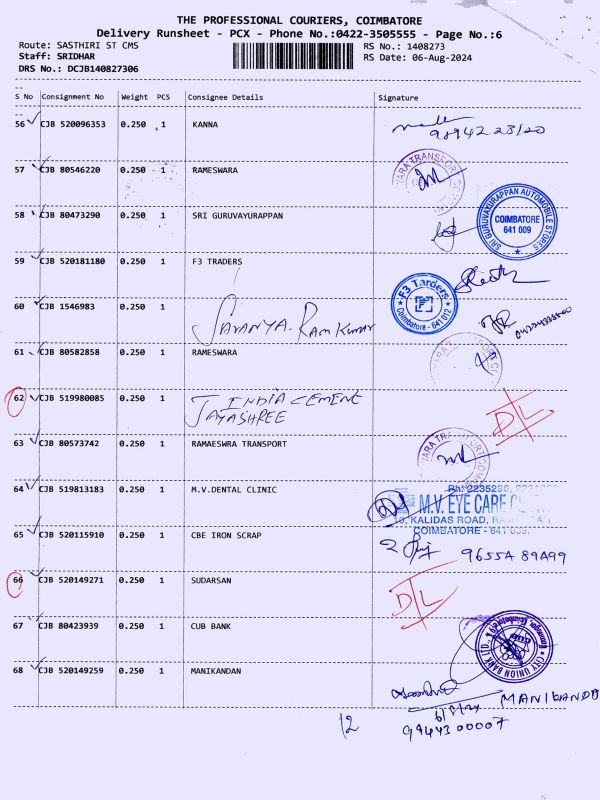 THE PROFESSIONAL COURIERS, COIMBATORE
Delivery Runsheet - PCX - Phone No.:0422-3505555 - Page No.:6
Route: SASTHIRI ST CMS
RS No.: 1408273
Staff: SRIDHAR
RS Date: 06-Aug-2024
DRS No.: DCJB140827306
S No Consignment No Weight PCS Consignee Details Signature
56 CJB 520096353 0.250 1 KANNA
57 CJB 80546220 0.250 1 RAMESWARA
58 CJB 80473290 0.250 1 SRI GURUVAYURAPPAN
SRI GURUVAYURAPPAN AUTOMOBILE STORES
COIMBATORE
641 009
59 CJB 520181180 0.250 1 F3 TRADERS
F3 Tarders
Coimbatore - 641 012
60 CJB 1546983 0.250 1 SARANYA. RAM KUMAR
61 CJB 80582858 0.250 1 RAMESWARA
62 CJB 519980085 0.250 1 INDIA CEMENT
JAYASHREE
D/L
63 CJB 80573742 0.250 1 RAMAESWRA TRANSPORT
64 CJB 519813183 0.250 1 M.V.DENTAL CLINIC
Ph: 2235296,
M.V. EYE CARE
10, KALIDAS ROAD,
COIMBATORE - 641 009.
65 CJB 520115910 0.250 1 CBE IRON SCRAP
96554 89A99
66 CJB 520149271 0.250 1 SUDARSAN
D/L
67 CJB 80423939 0.250 1 CUB BANK
CITY UNION BANK LTD.
68 CJB 520149259 0.250 1 MANIKANDAN
MANIKANDA
6/8/24
99443 00007
12